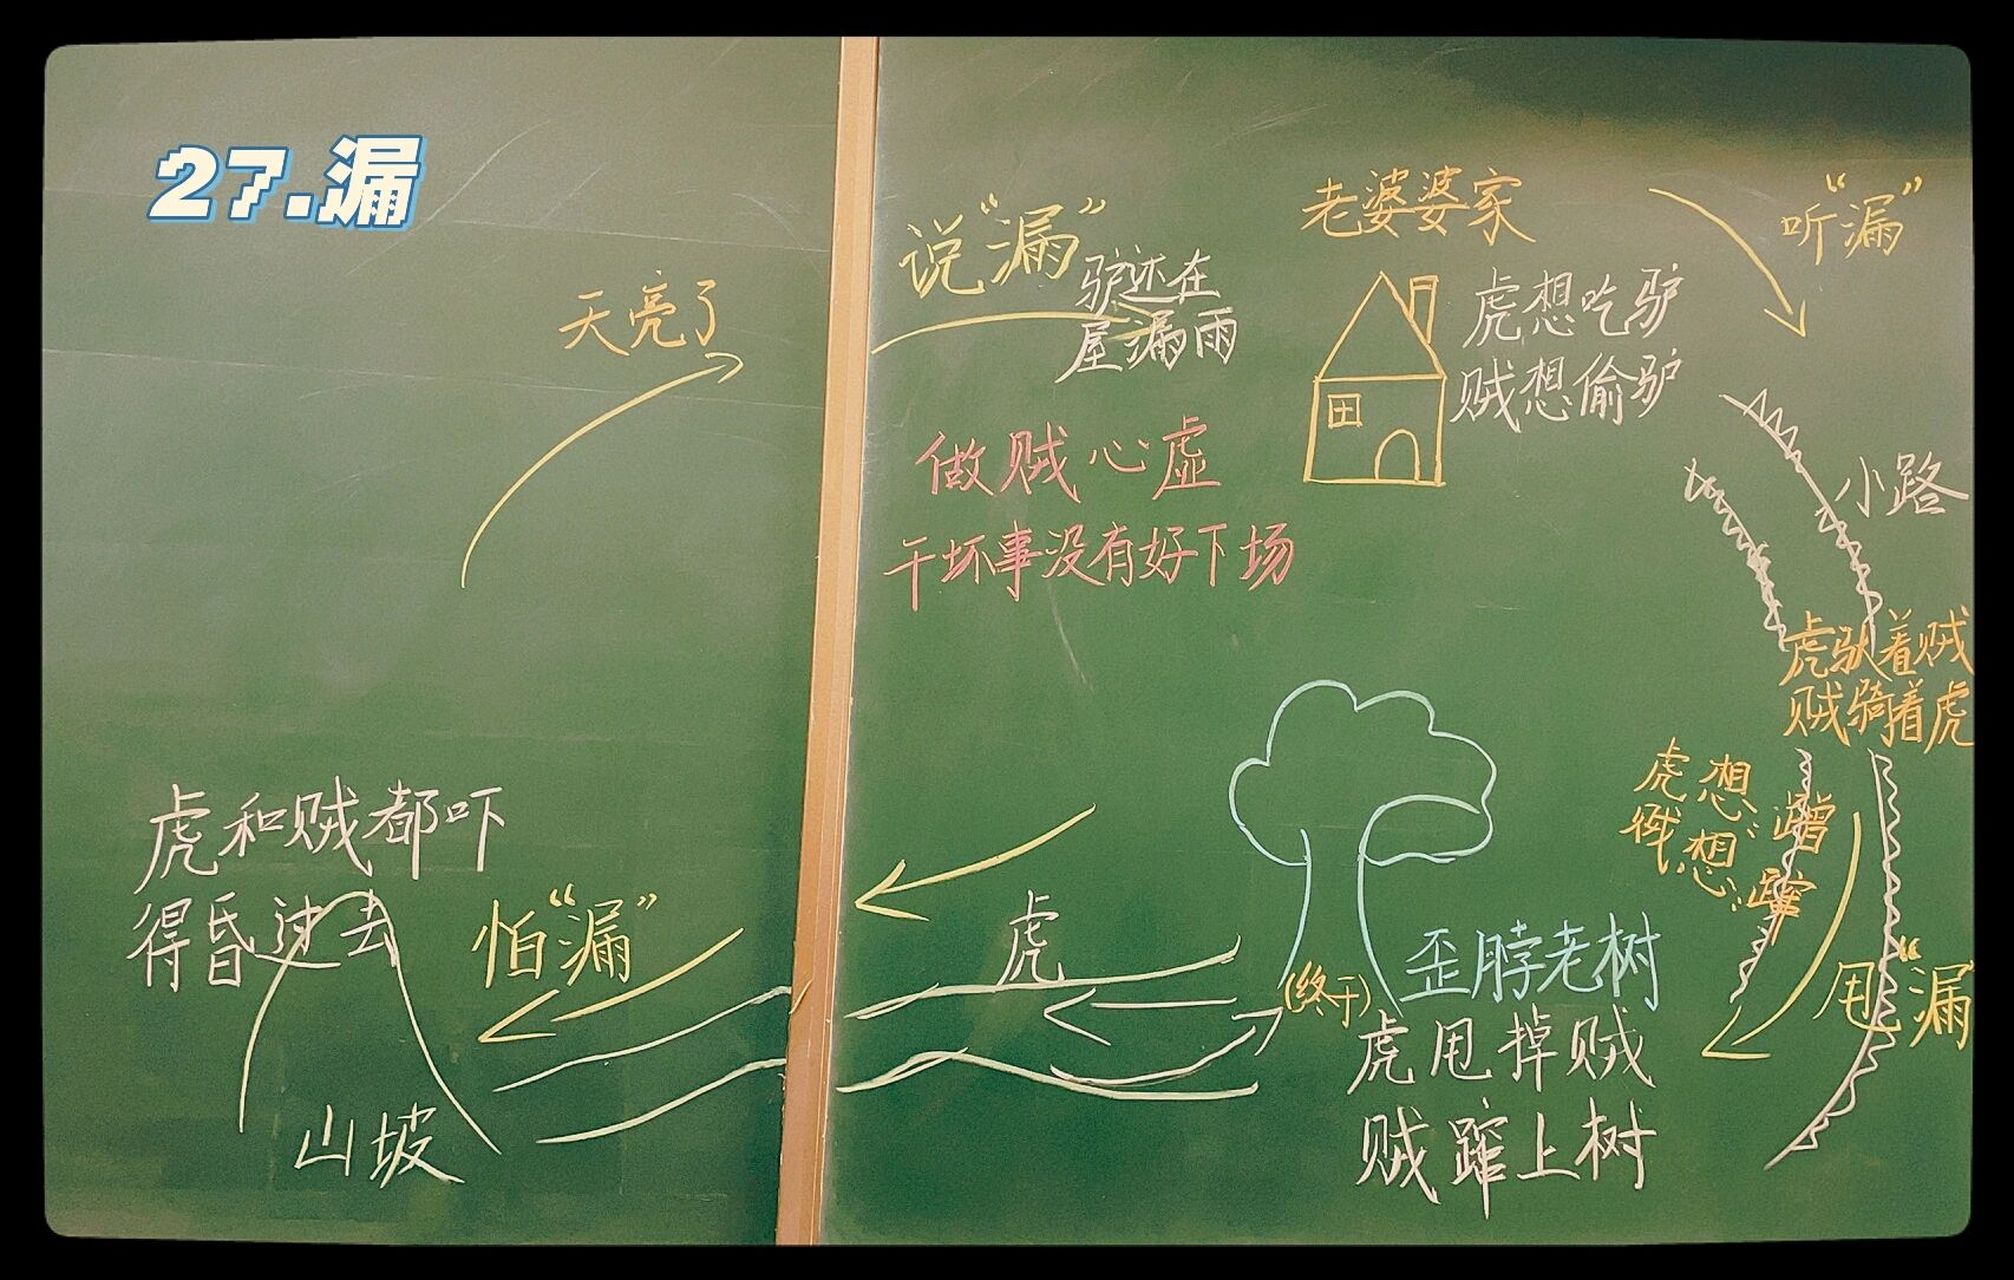 27.漏
天亮了
说“漏”
驴还在
屋漏雨
老婆婆家
听“漏”
虎想吃驴
贼想偷驴
做贼心虚
干坏事没有好下场
小路
虎驮着贼
贼骑着虎
虎想:蹭
贼想:蹿
甩“漏”
歪脖老树
(终于)
虎甩掉贼
贼蹿上树
虎
怕“漏”
虎和贼都吓
得昏过去
山坡